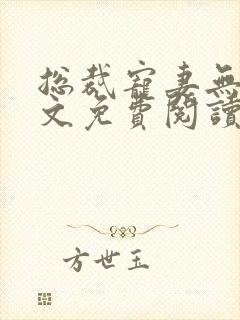 总裁寵妻無
文免費閱讀
方世玉